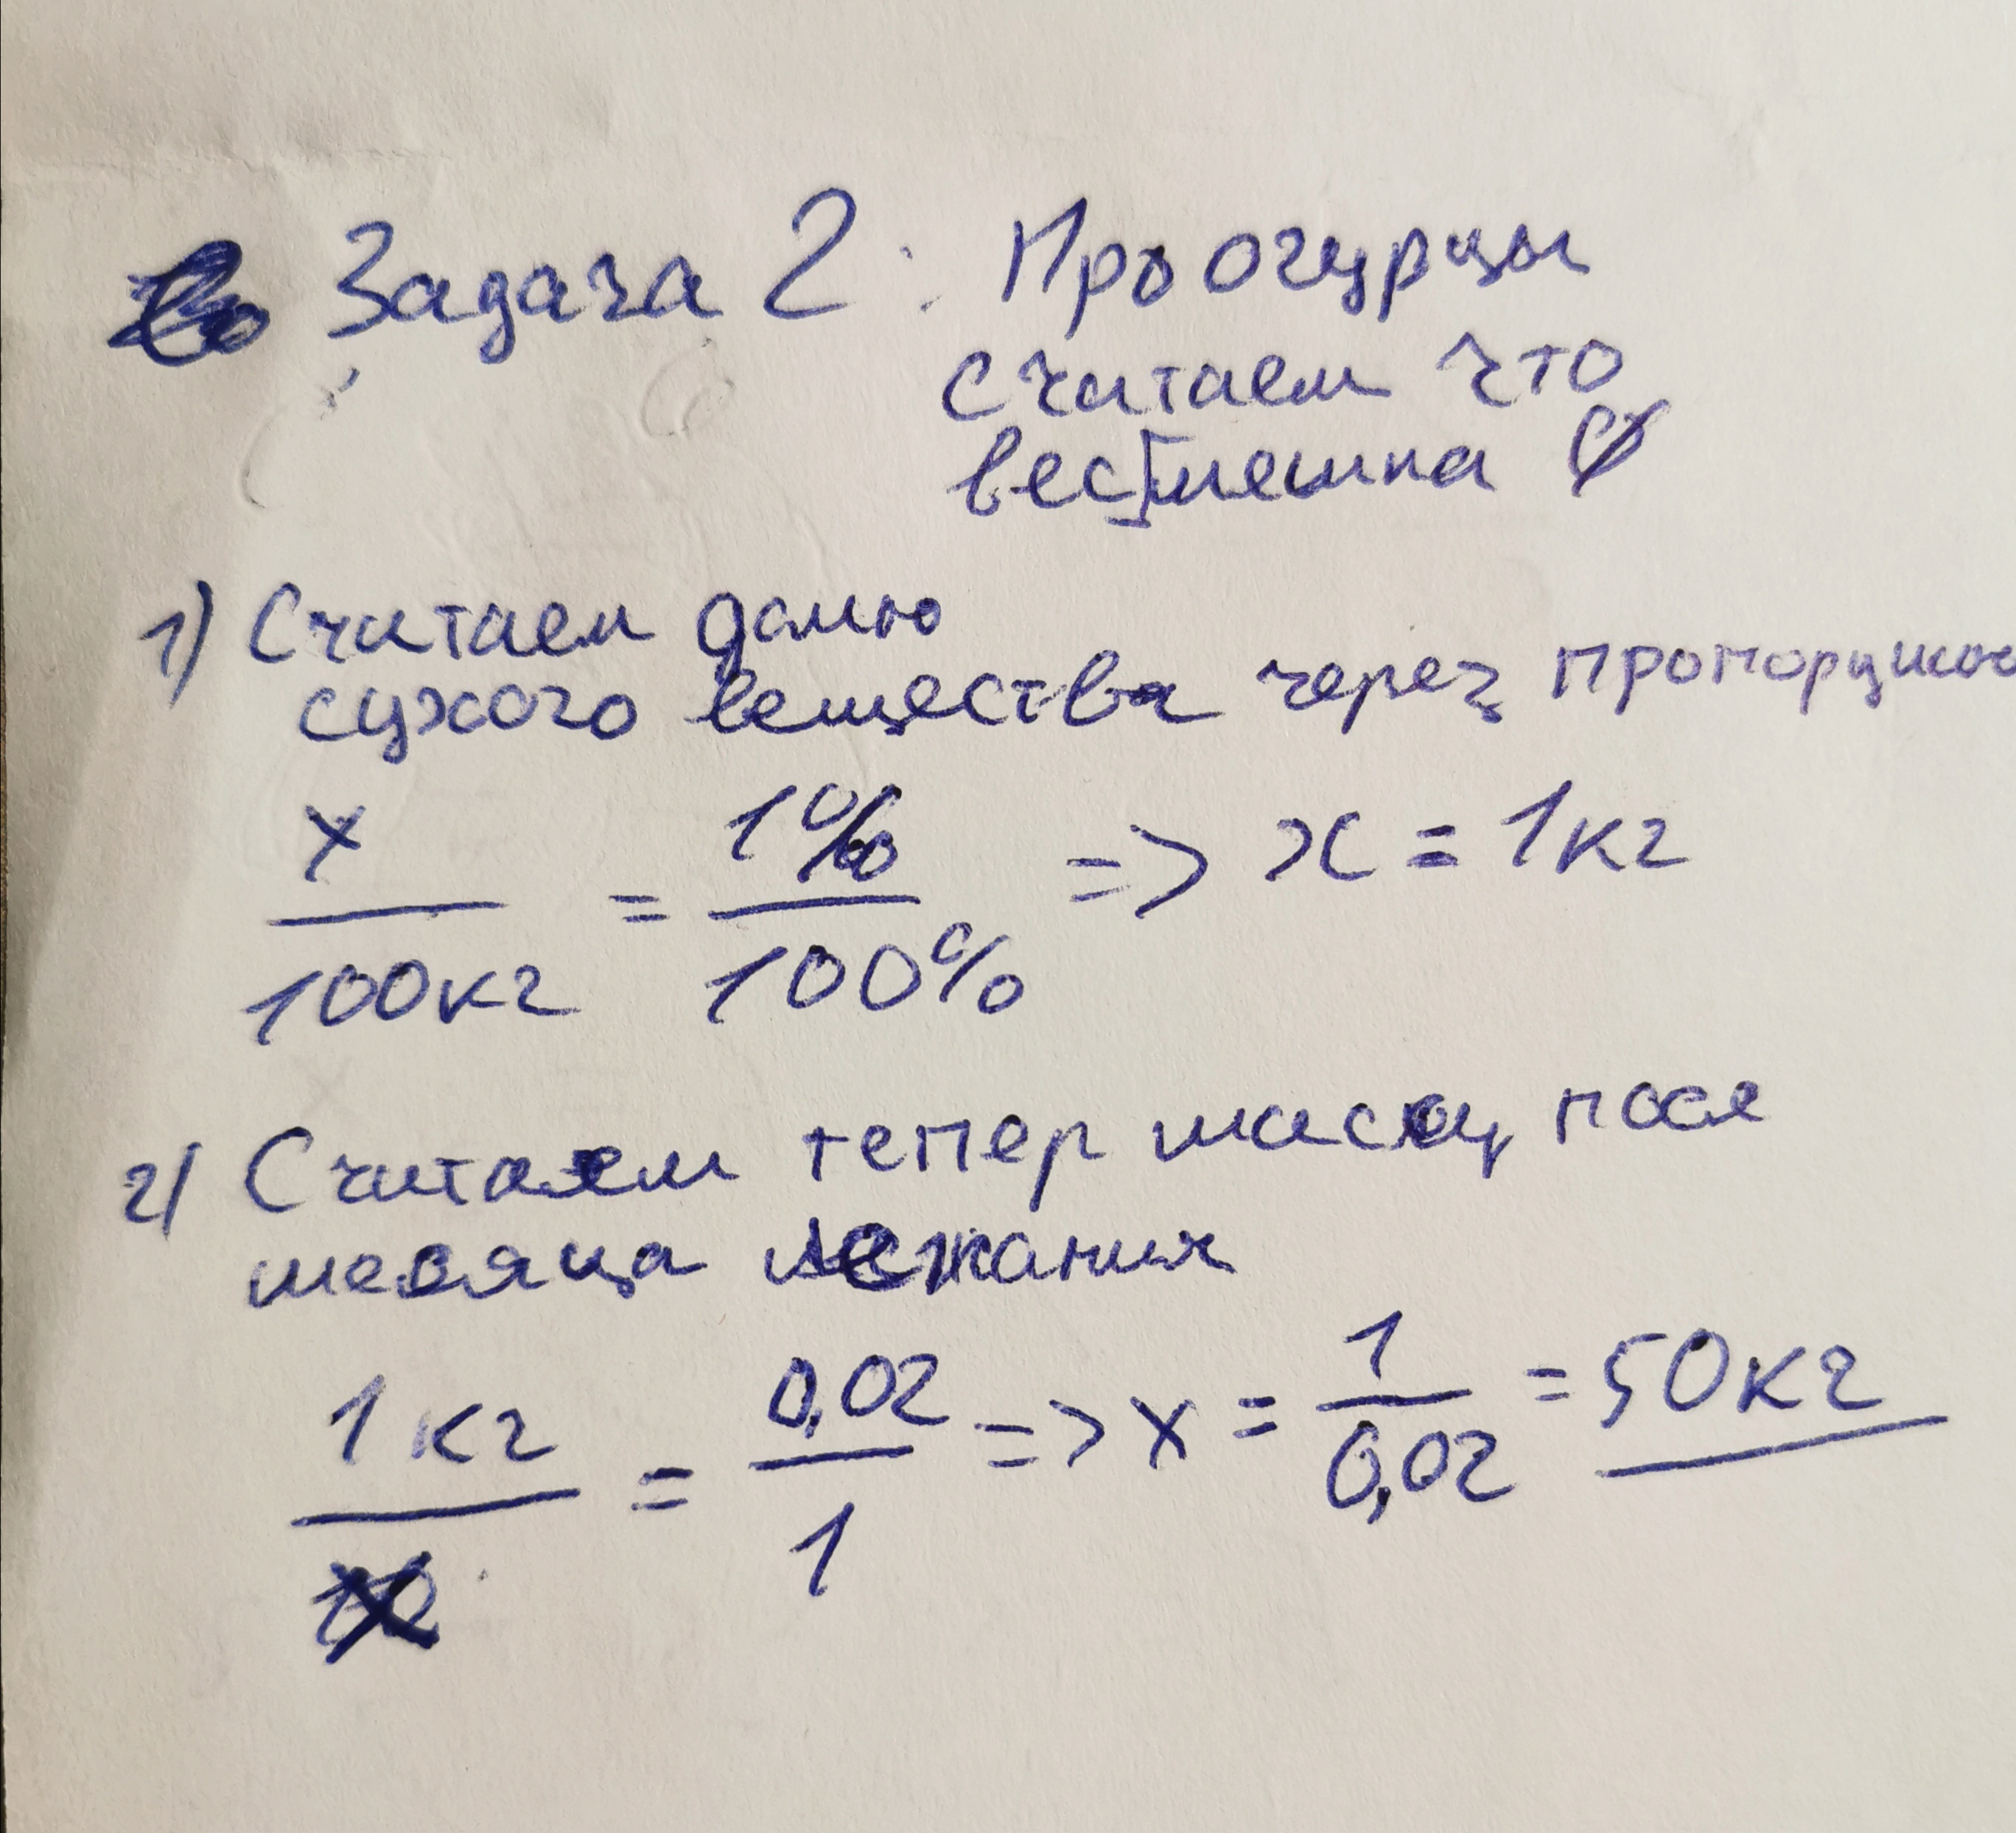 Задача 2: Про огурцы
считаем что
вес мешка Ø
1) Считаем долю
сухого вещества через пропорцию
x/100кг = 1%/100% => x = 1кг
2) Считаем тепер массу посе
месяца лежания
1кг/x = 0,02/1 => x = 1/0,02 = 50кг